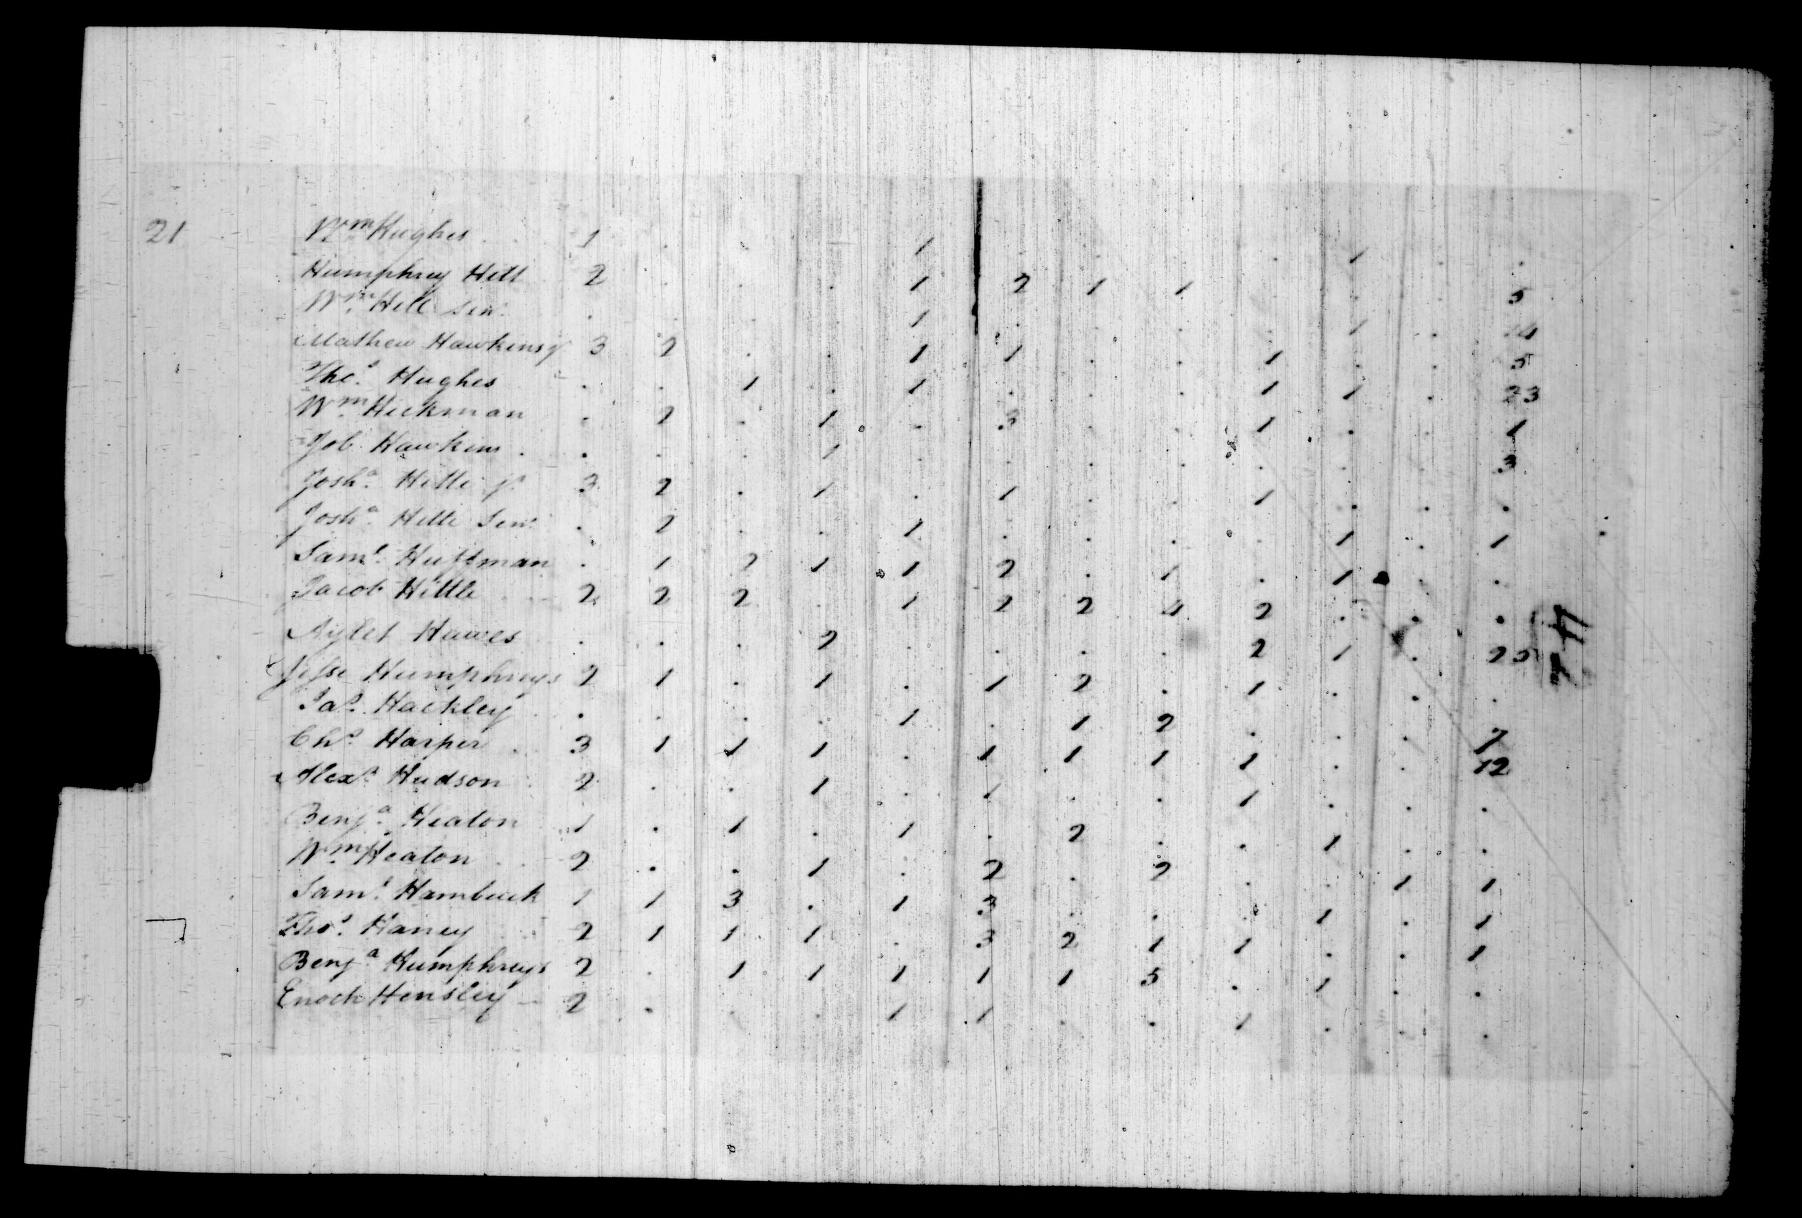 21 Wm. Hughes 1 . . . 1 . . . . 1 . .
Humphrey Hill 2 . . . 1 2 1 1 . . . 5
Wm. Hill Senr. . . . . 1 . . . . 1 . 14
Mathew Hawkins jr 3 2 . . 1 1 . . 1 . . 5
Thos. Hughes . . 1 . 1 . . . 1 1 . 23
Wm. Hickman . 2 . 1 . 3 . . 1 . . 1
Job Hawkins . . . 1 . . . . . . . 3
Josha. Hitle jr. 3 2 . 1 . 1 . . 1 . . .
Josha. Hitle Senr. . 2 . . 1 . . . . 1 . 1
Saml. Huffman . 1 2 1 1 2 . 1 . 1 . .
Jacob Hittle 2 2 2 . 1 2 2 4 2 . . .
Aylet Hawes . . . 2 . . . . 2 1 . 25
Jesse Humphreys 2 1 . 1 . 1 2 . 1 . . .
Jas. Hackley . . . . 1 . 1 2 . . . 7
Chs. Harper 3 1 1 1 . 1 1 1 1 . . 12
Alexr. Hudson 2 . . 1 . 1 . . 1 . . .
Benja. Heaton 1 . 1 . 1 . 2 . . 1 . .
Wm. Heaton 2 . . 1 . 2 . 2 . . 1 1
Saml. Hambuck 1 1 3 . 1 3 . . . 1 . 1
Thos. Haney 2 1 1 1 . 3 2 1 1 . . 1
Benja. Humphreys 2 . 1 1 1 1 1 5 . 1 . .
Enoch Hensley 2 . . . 1 1 . . 1 . . .